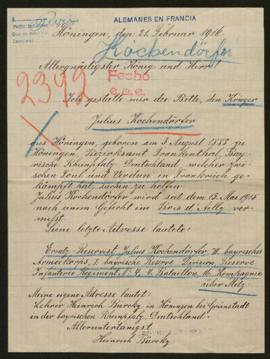 ALEMANES EN FRANCIA
Höningen, den 22. Februar 1916
Kochendörfer
Allergnädigster König und Herr!
2392
Fecho
e.a.e.
Ich gestatte mir die Bitte, den Krieger
Julius Kochendörfer
aus Höningen, geboren am 3. August 1888 zu
Höningen, Bezirksamt Frankenthal, Bay-
rische Rheinpfalz Deutschland, welcher zwischen
Toul und Verdun in Frankreich ge-
kämpft hat, suchen zu helfen.
Julius Kochendörfer wird seit dem 15. Mai 1915
nach einem Gefecht im Bois d'Ailly ver-
misst.
Seine letzte Adresse lautet:
Ersatz Reservist Julius Kochendörfer bayrisches
Armeekorps, bayrische Reserve Division, Reserve
Infanterie Regiment, Bataillon, Kompagnie
über Metz.
Meine eigene Adresse lautet:
Lehrer Heinrich in Höningen bei Grünstadt
in der bayrischen Rheinpfalz, Deutschland.
Alleruntertänigst
Heinrich